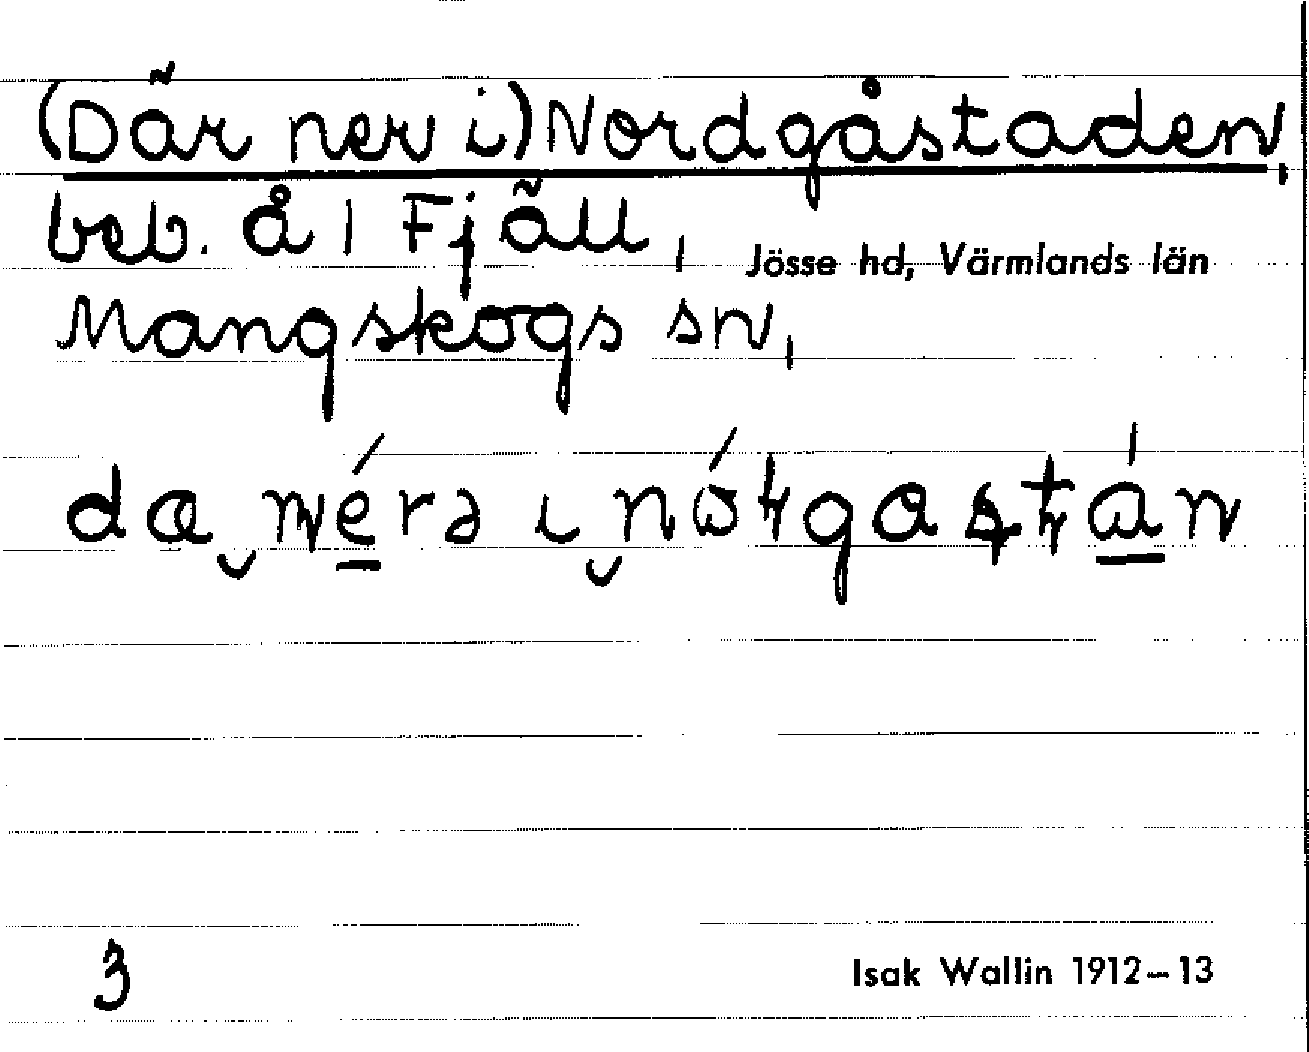 (Där ner i) Nordgåstaden,
beb. å 1 Fjäll, Jösse hd, Värmlands län
Mangskogs sn,
3
Isak Wallin 1912–13